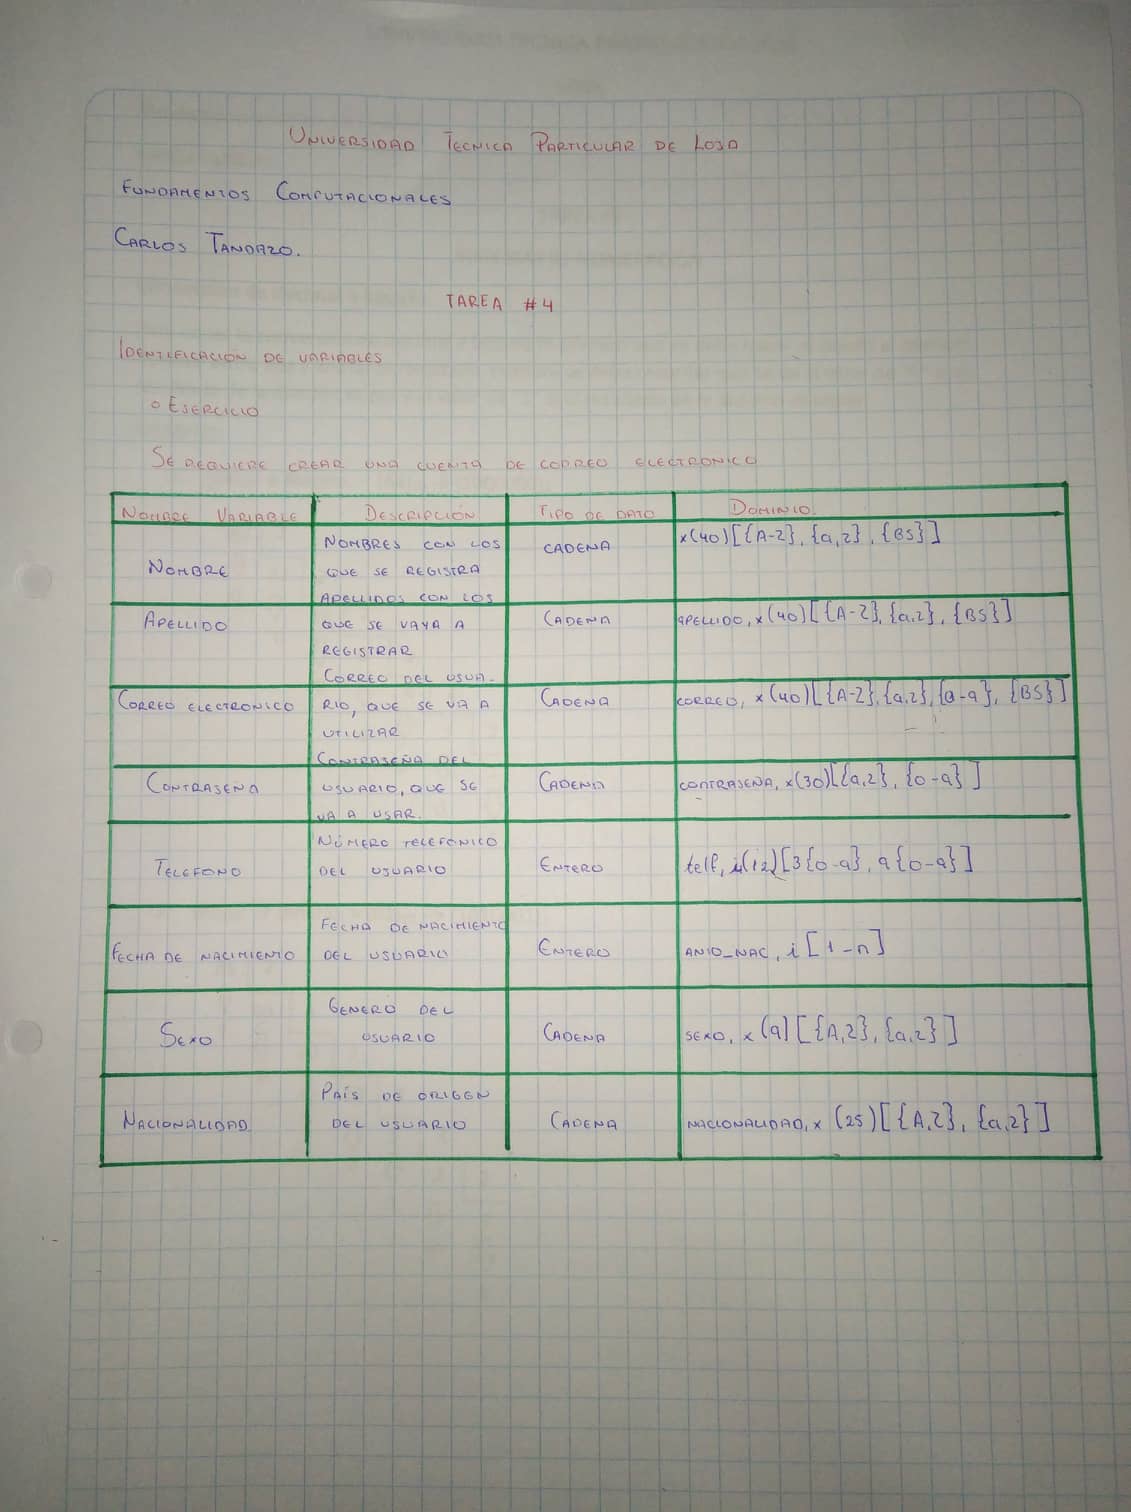 UNIVERSIDAD TECNICA PARTICULAR DE LOJA
FUNDAMENTOS COMPUTACIONALES
CARLOS TANDAZO.
TAREA #4
IDENTIFICACIÓN DE VARIABLES
o EJERCICIO
SE REQUIERE CREAR UNA CUENTA DE CORREO ELECTRONICO
NOMBRE VARIABLE DESCRIPCIÓN TIPO DE DATO DOMINIO.
NOMBRE
NOMBRES CON LOS
QUE SE REGISTRA
CADENA
x(40)[{A-Z},{a,z},{BS}]
APELLIDO
APELLIDOS CON LOS
QUE SE VAYA A
REGISTRAR
CADENA
APELLIDO, x(40)[{A-Z},{a,z},{BS}]
CORREO ELECTRONICO
CORREO DEL USUA-
RIO, QUE SE VA A
UTILIZAR
CADENA
CORREO, x(40)[{A-Z},{a,z},{0-9},{BS}]
CONTRASEÑA
CONTRASEÑA DEL
USUARIO, QUE SE
VA A USAR.
CADENA
CONTRASEÑA, x(30)[{a,z},{0-9}]
TELEFONO
NÚMERO TELEFÓNICO
DEL USUARIO
ENTERO
telf, i(12)[3{0-9}, 9{0-9}]
FECHA DE NACIMIENTO
FECHA DE NACIMIENTO
DEL USUARIO
ENTERO
ANIO_NAC, i[1-n]
SEXO
GENERO DEL
USUARIO
CADENA
SEXO, x(9)[{A,Z},{a,z}]
NACIONALIDAD
PAÍS DE ORIGEN
DEL USUARIO
CADENA
NACIONALIDAD, x (25)[{A,Z},{a,z}]